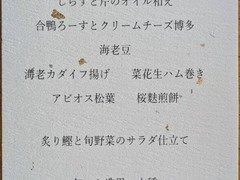 しらすと芹のオイル和え
合鴨ろーすとクリームチーズ博多
海老豆
海老カダイフ揚げ　菜花生ハム巻き
アピオス松葉　桜麩煎餅
炙り鰹と旬野菜のサラダ仕立て